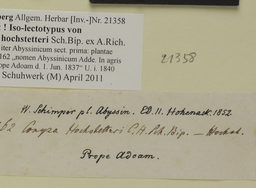 berg Allgem. Herbar [Inv.-]Nr. 21358
! Iso-lectotypus von
hochstetteri Sch.Bip. ex A.Rich.
iter Abyssinicum sect. prima: plantae
162 „nomen Abyssinicum Adde. In agris
ope Adoam d. 1. Jun. 1837“ U. i. 1840
Schuhwerk (M) April 2011
21358
W. Schimper pl. Abyssin. Ed. II. Hohenack. 1852.
162 Conyza Hochstetteri C.H. Sch. Bip. — Hochst.
Prope Adoam.